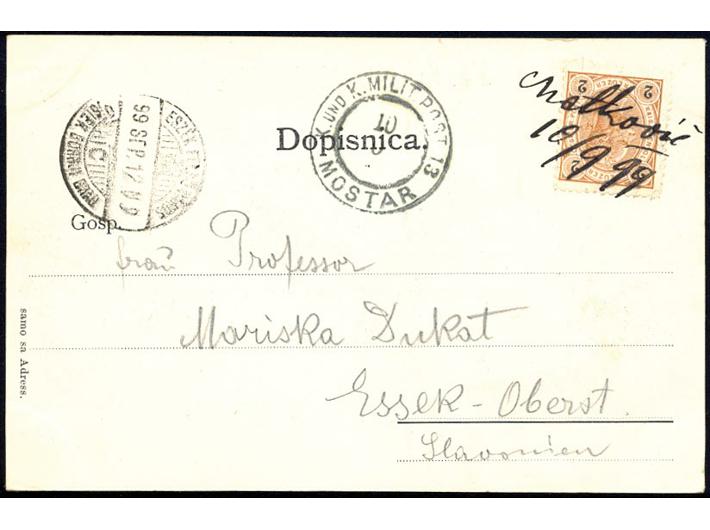 Dopisnica.
K. UND K. MILIT. POST 13
MOSTAR
10
9
Malkovič
10/9 99
2 2
99 SEP 12
Gosp.
Frau Professor
Mariska Dukat
Essek-Oberst.
Slavonien
samo sa Adress.